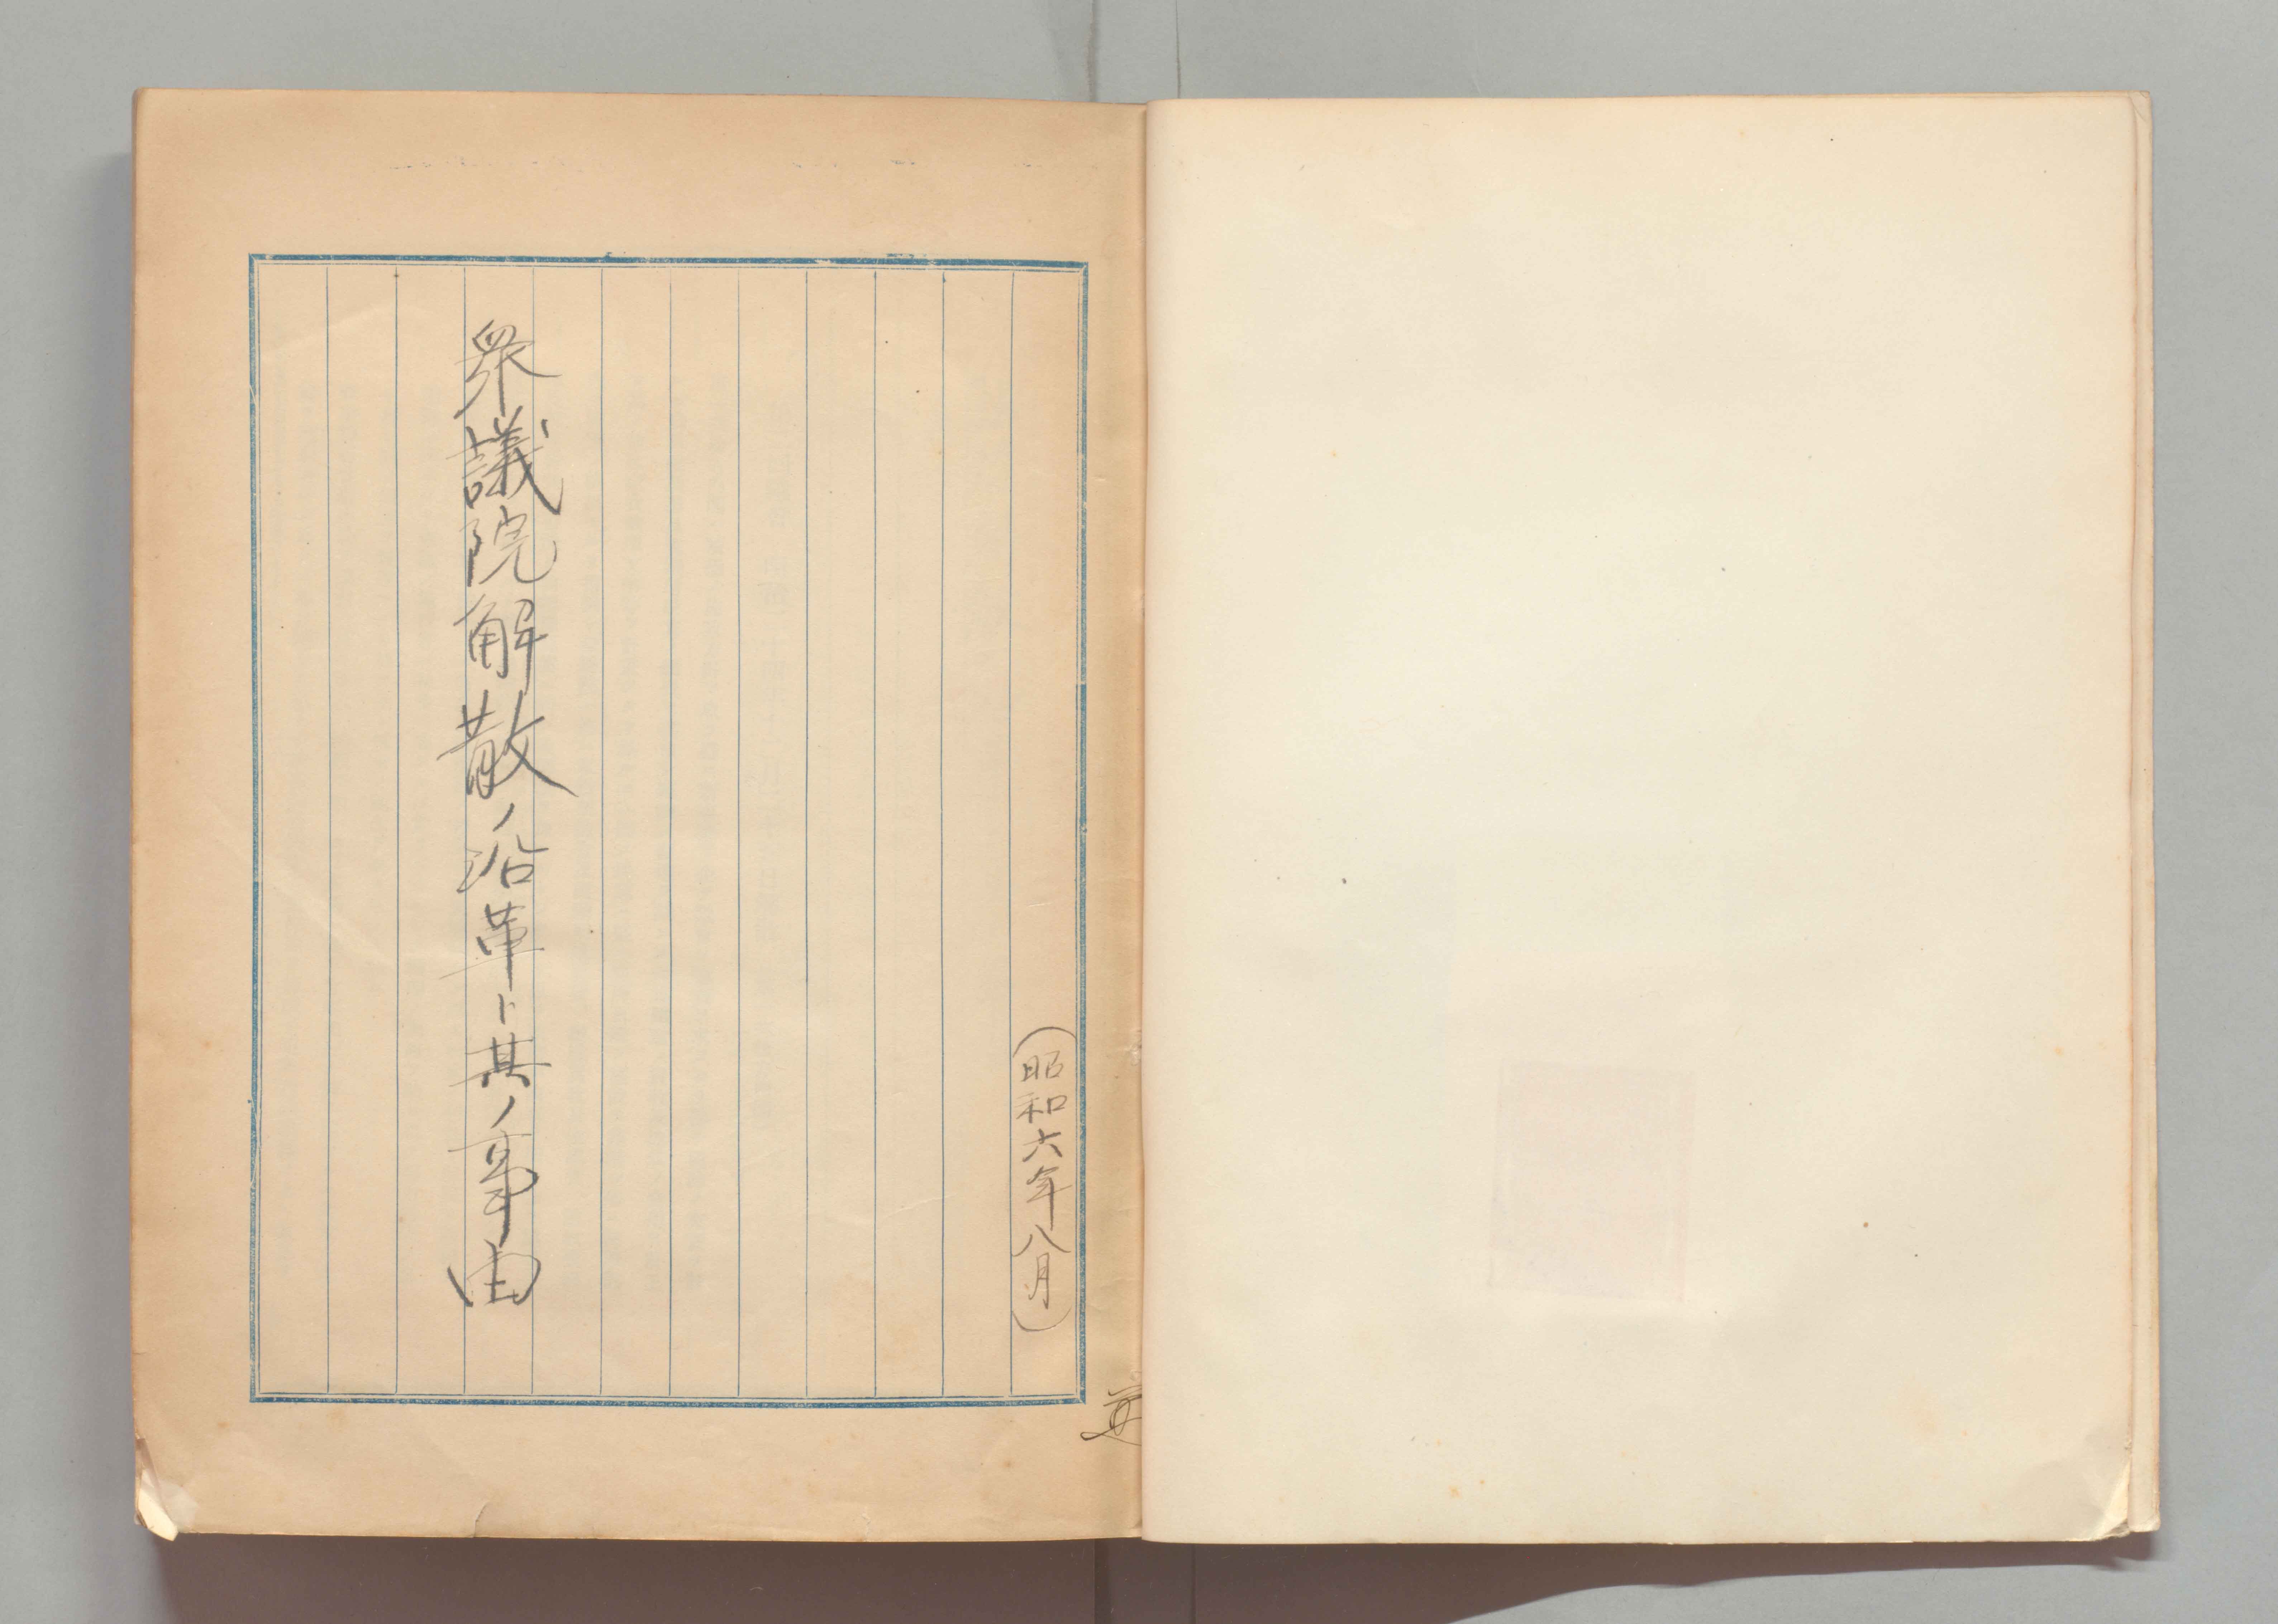 （昭和六年八月）
衆議院解散ノ沿革ト其ノ事由